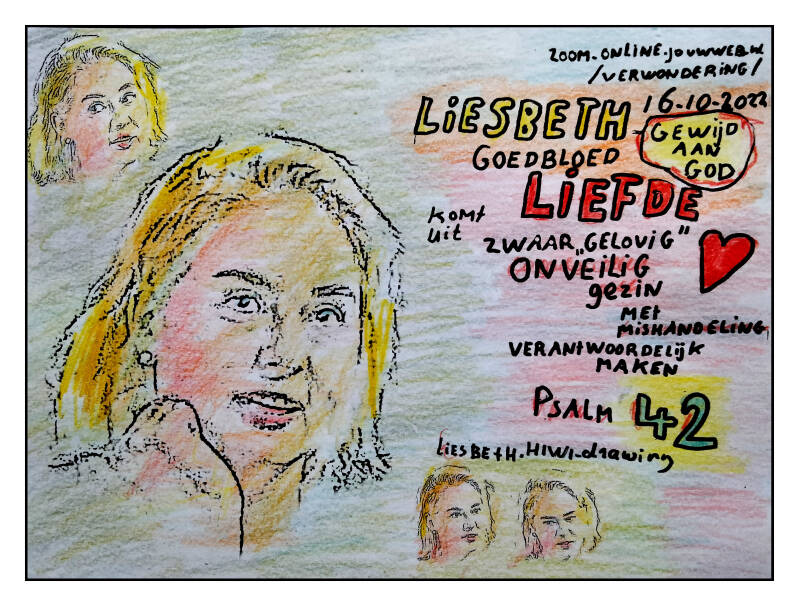 ZOOM.ONLINE.JOUWWEB.NL
/VERWONDERING/
16-10-2022
LiESBETH
GOEDBLOED
GEWIJD
AAN
GOD
LiEFDE
KOMT
Uit
ZWAAR „GELOViG"
ONVEiLiG
gEZiN
MEt
MiSHANDELiNG
VERANTWOORDELijK
MAKEN
PSALM 42
LiESBEtH.HIWI-dRAWiNg